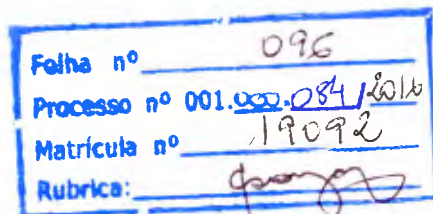 Folha nº 096
Processo nº 001.000.084/2016
Matrícula nº 19092
Rubrica: